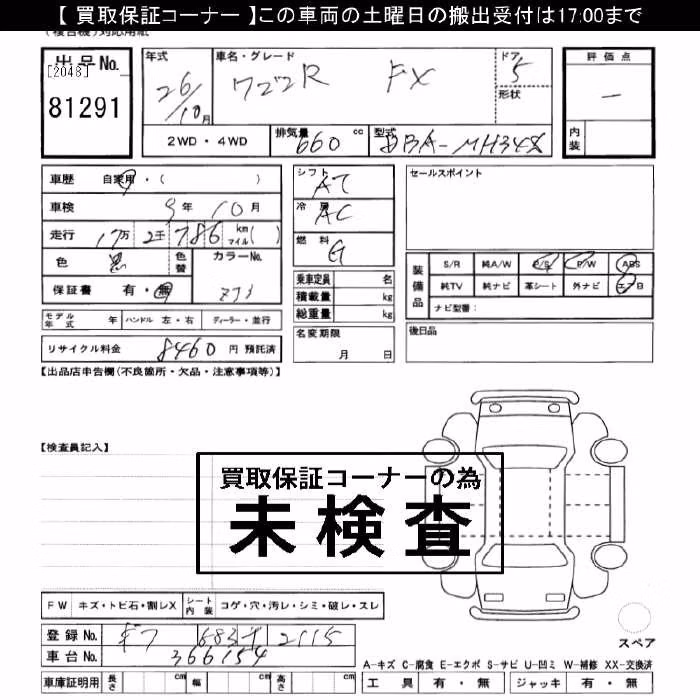 【 買取保証コーナー 】この車両の土曜日の搬出受付は17:00まで
(複合機)対応用紙
出品No.
[2048]
81291
年式
26/10月
車名・グレード
ワゴンR FX
ドア
5
形状
評価点
—
内装
2WD・4WD
排気量 660 cc
型式 DBA-MH34S
車歴 自家用・( )
車検 9年 10月
走行 17万 2千 786 km マイル( )
色 黒 色替 カラーNo.
保証書 有・無 ZJ3
シフト AT
冷房 AC
燃料 G
乗車定員 名
積載量 kg
総重量 kg
セールスポイント
装備品
S/R 純A/W P/S P/W ABS
純TV 純ナビ 革シート 外ナビ エアB
ナビ型番:
モデル年式 年 ハンドル 左・右 ディーラー・並行
名変期限 月 日
後日品
リサイクル料金 8460 円 預託済
【出品店申告欄(不良箇所・欠品・注意事項等)】
【検査員記入】
買取保証コーナーの為
未検査
FW キズ・トビ石・割レX シート内装 コゲ・穴・汚レ・シミ・破レ・スレ
登録No. ギフ 683 2115
車台No. 366154
スペア
A-キズ C-腐食 E-エクボ S-サビ U-凹ミ W-補修 XX-交換済
車庫証明用 長さ cm 幅 cm 高さ cm
工具 有・無 ジャッキ 有・無